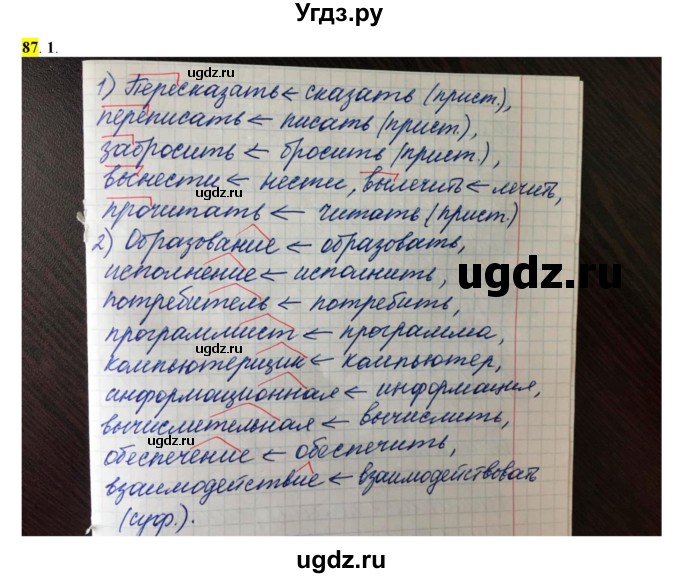 Угдз.ру
87. 1.
ugdz.ru
1) Пересказать ← сказать (прист.),
переписать ← писать (прист.),
ugdz.ru
забросить ← бросить (прист.),
вынести ← нести, вылечить ← лечить,
прочитать ← читать (прист.)
ugdz.ru
2) Образование ← образовать,
исполнение ← исполнить,
ugdz.ru
потребитель ← потребить,
программист ← программа,
ugdz.ru
компьютерщик ← компьютер,
информационная ← информация,
вычислительная ← вычислить,
ugdz.ru
обеспечение ← обеспечить,
взаимодействие ← взаимодействовать
(суф.).
ugdz.ru